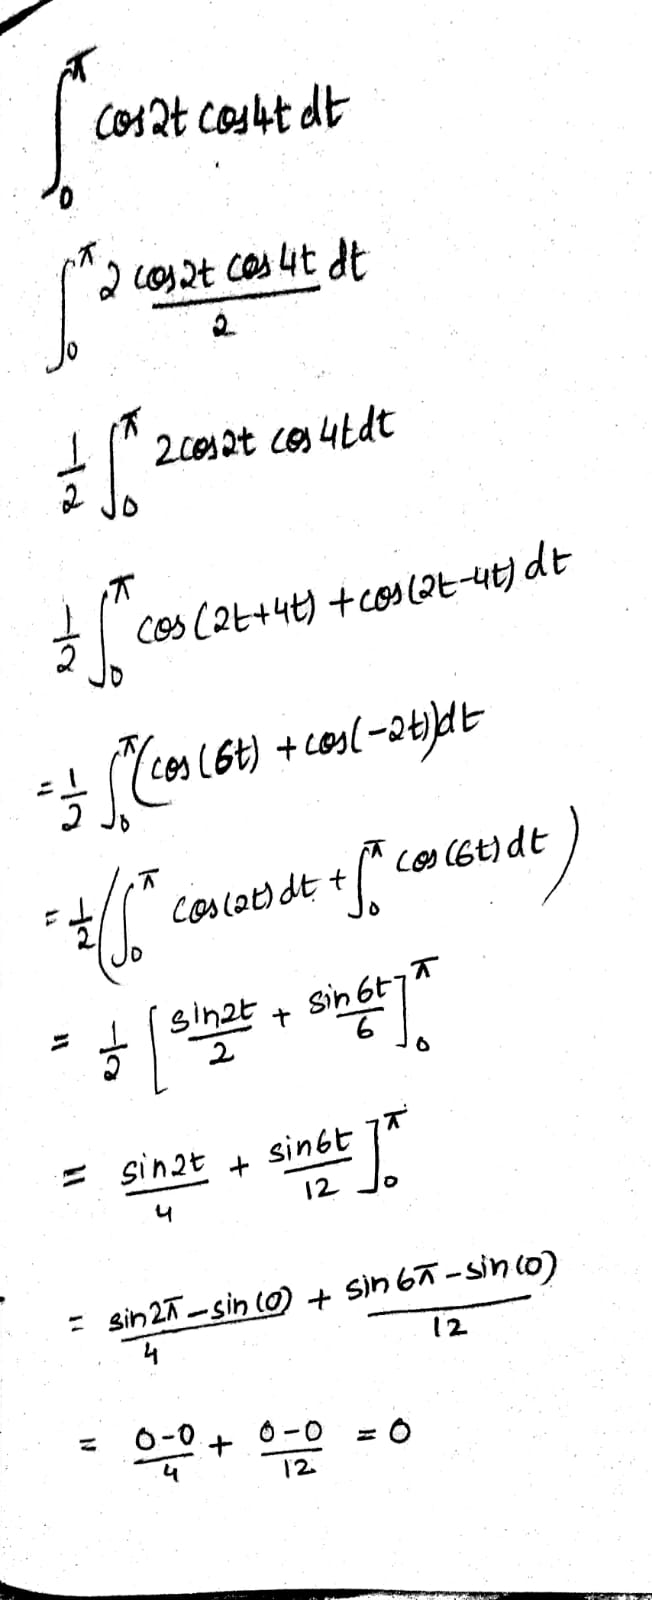 ∫₀^π cos2t cos4t dt
∫₀^π (2 cos2t cos4t)/2 dt
1/2 ∫₀^π 2cos2t cos4tdt
1/2 ∫₀^π cos(2t+4t) + cos(2t-4t) dt
= 1/2 ∫₀^π (cos(6t) + cos(-2t))dt
= 1/2 (∫₀^π cos(2t) dt + ∫₀^π cos(6t) dt)
= 1/2 [sin2t/2 + sin6t/6]₀^π
= sin2t/4 + sin6t/12 ]₀^π
= (sin2π - sin(0))/4 + (sin6π - sin(0))/12
= (0-0)/4 + (0-0)/12 = 0